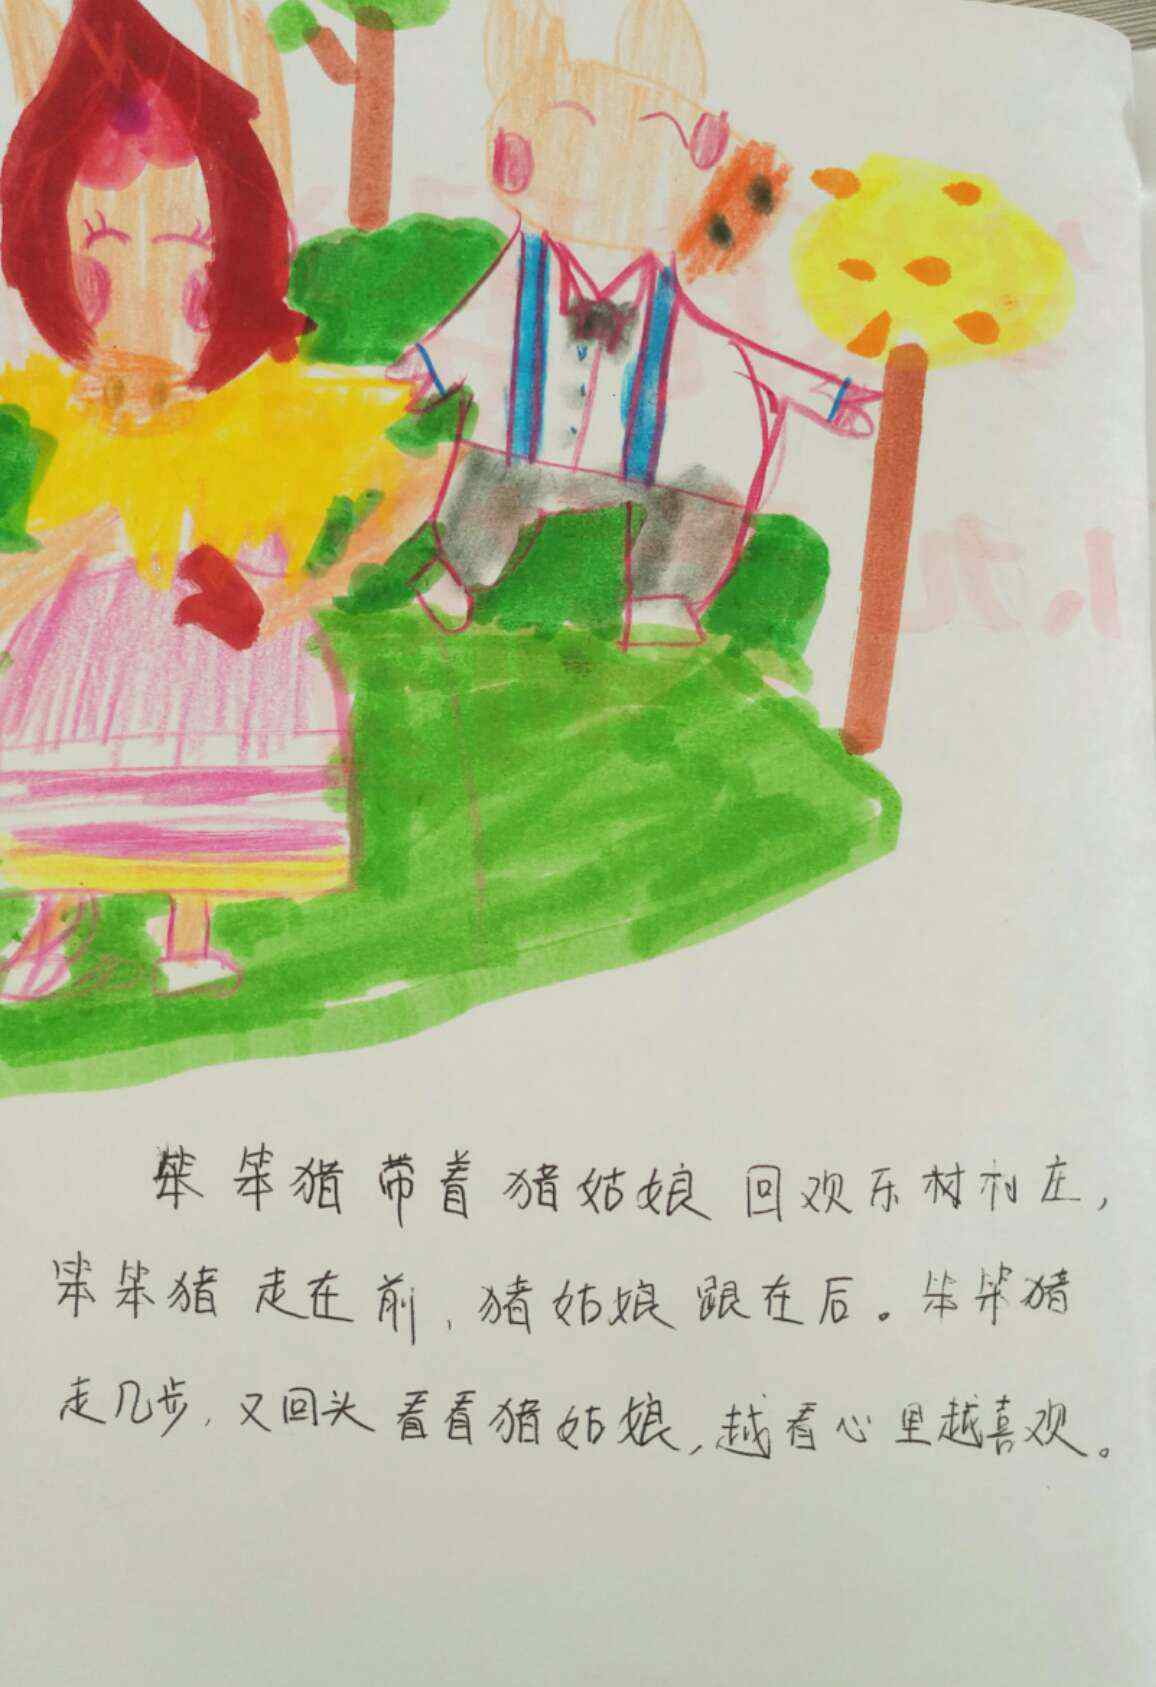 笨笨猪带着猪姑娘回欢乐村村庄，
笨笨猪走在前，猪姑娘跟在后。笨笨猪
走几步，又回头看看猪姑娘，越看心里越喜欢。